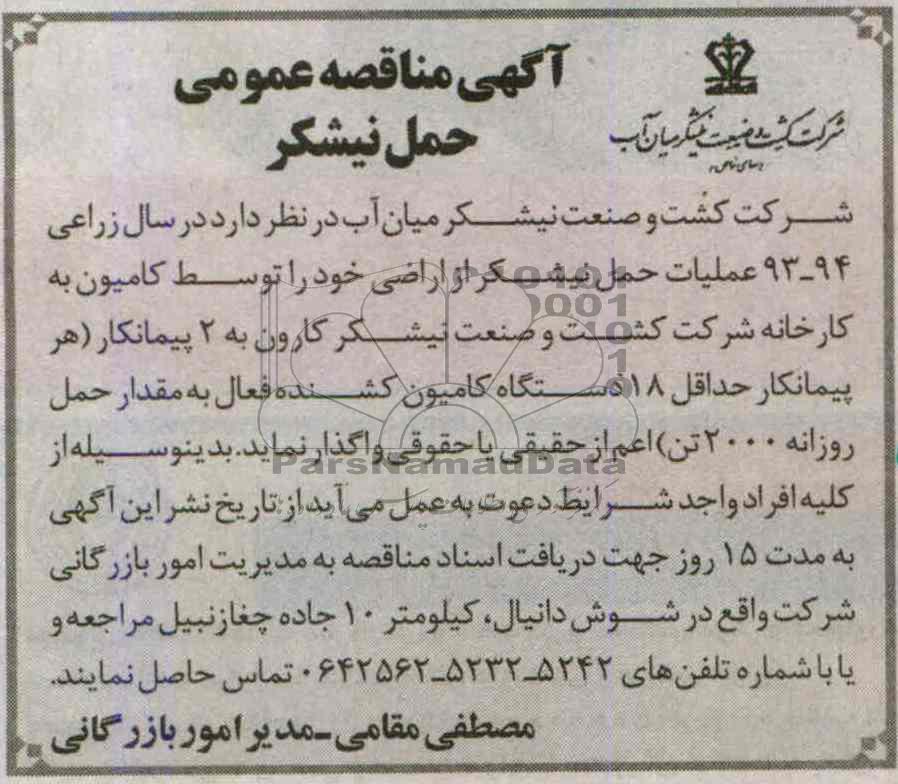 آگهی مناقصه عمومی
حمل نیشکر
شرکت کشت و صنعت نیشکر میان آب
(سهامی خاص)
شرکت کشت و صنعت نیشکر میان آب در نظر دارد در سال زراعی
۹۳ـ۹۴ عملیات حمل نیشکر از اراضی خود را توسط کامیون به
کارخانه شرکت کشت و صنعت نیشکر کارون به ۲ پیمانکار (هر
پیمانکار حداقل ۱۸ دستگاه کامیون کشنده فعال به مقدار حمل
روزانه ۲۰۰۰ تن) اعم از حقیقی یا حقوقی واگذار نماید. بدینوسیله از
کلیه افراد واجد شرایط دعوت به عمل می آید از تاریخ نشر این آگهی
به مدت ۱۵ روز جهت دریافت اسناد مناقصه به مدیریت امور بازرگانی
شرکت واقع در شوش دانیال، کیلومتر ۱۰ جاده چغازنبیل مراجعه و
یا با شماره تلفن های ۵۲۴۲ـ۵۲۳۲ـ۰۶۴۲۵۶۲ تماس حاصل نمایند.
مصطفی مقامی ـ مدیر امور بازرگانی
ParsNamadData